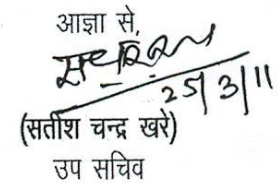 आज्ञा से,
25/3/11
(सतीश चन्द्र खरे)
उप सचिव